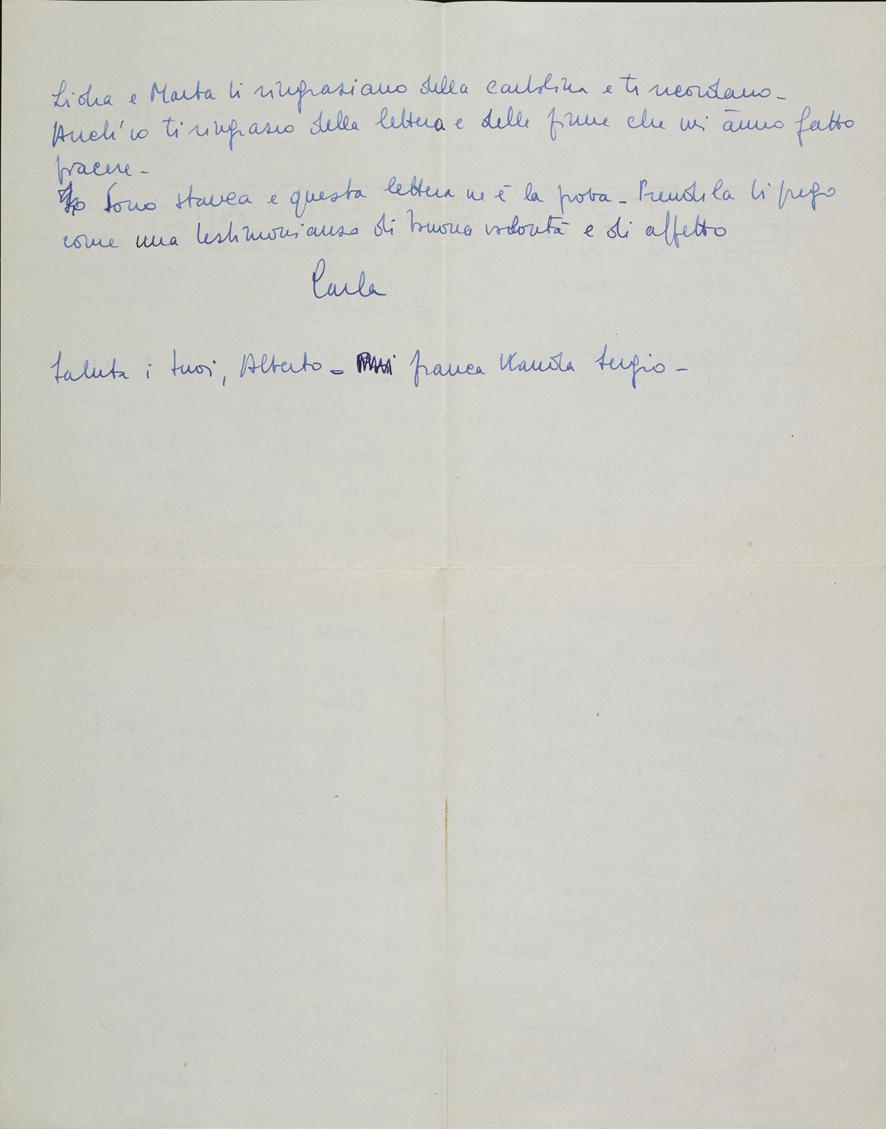 Lidia e Marta ti ringraziano della cartolina e ti ricordano -
Anch'io ti ringrazio della lettera e delle firme che mi ànno fatto
piacere -
Io sono stanca e questa lettera ne è la prova - Prendila ti prego
come una testimonianza di buona volontà e di affetto
Carla
Saluta i tuoi, Alberto - franca Vanda Sergio -